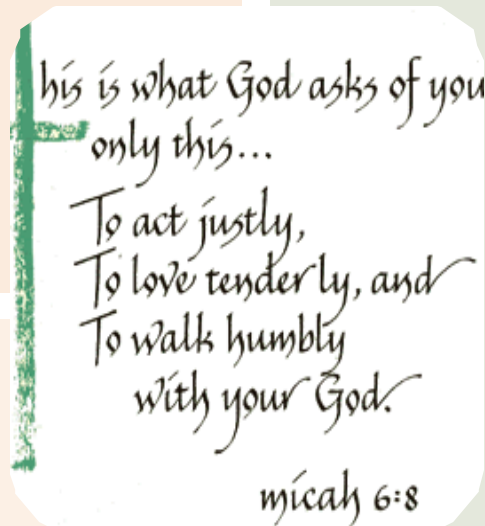 This is what God asks of you
only this...
To act justly,
To love tenderly, and
To walk humbly
with your God.
micah 6:8